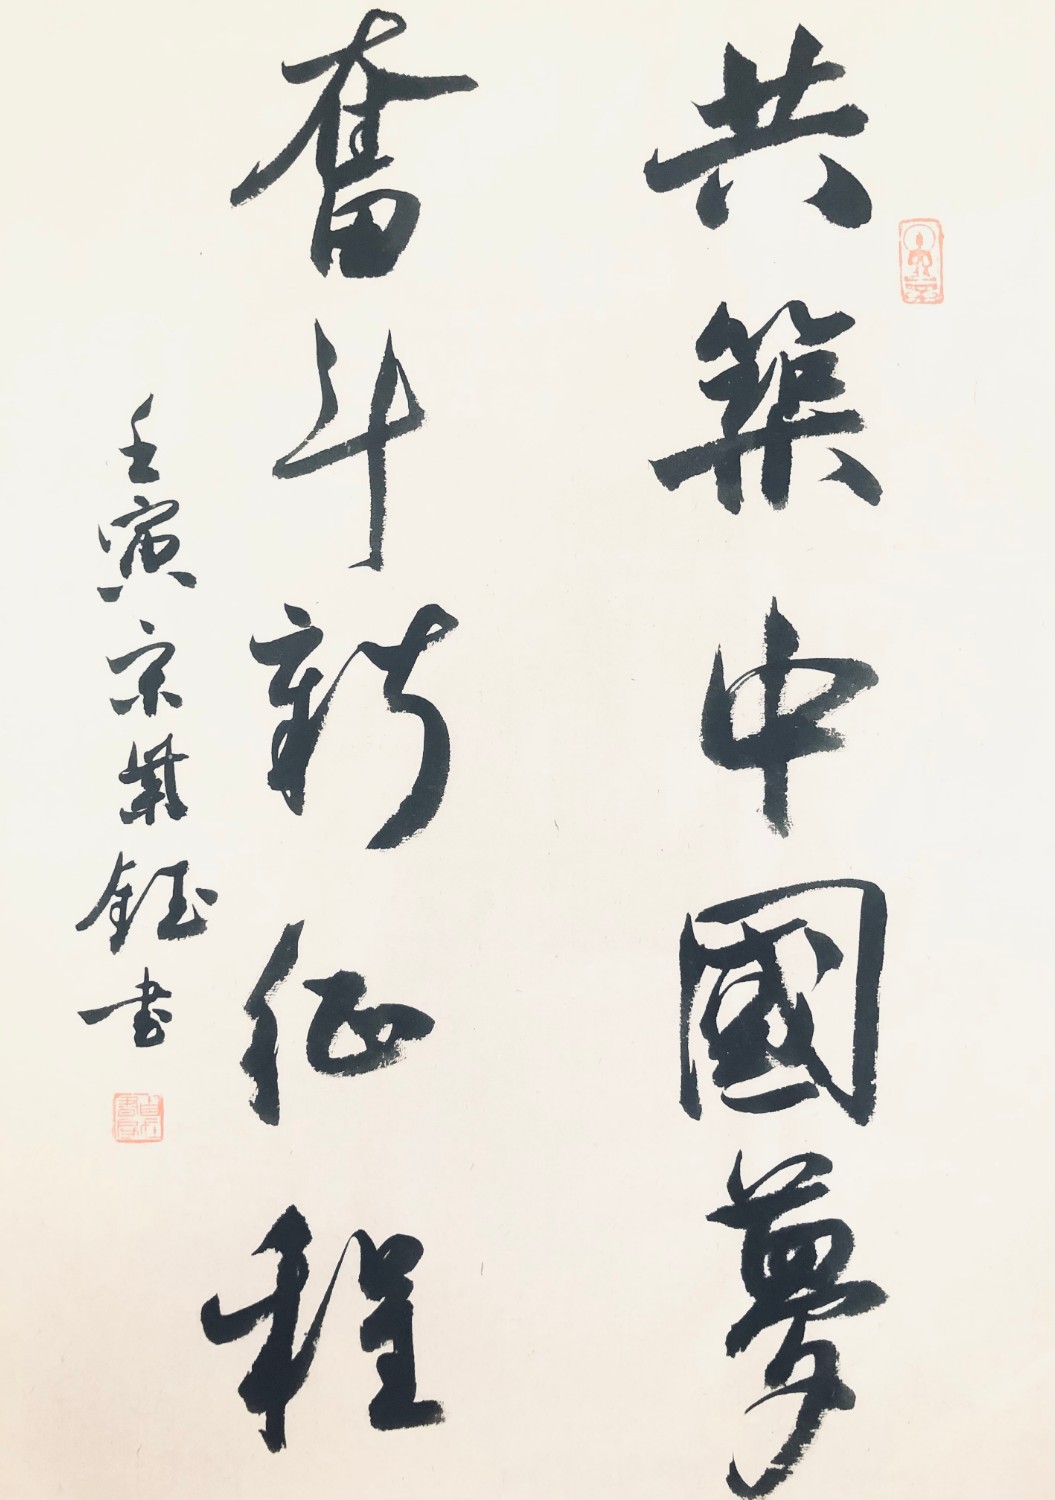 共築中國夢
奮斗新征程
壬寅宗業鈺書